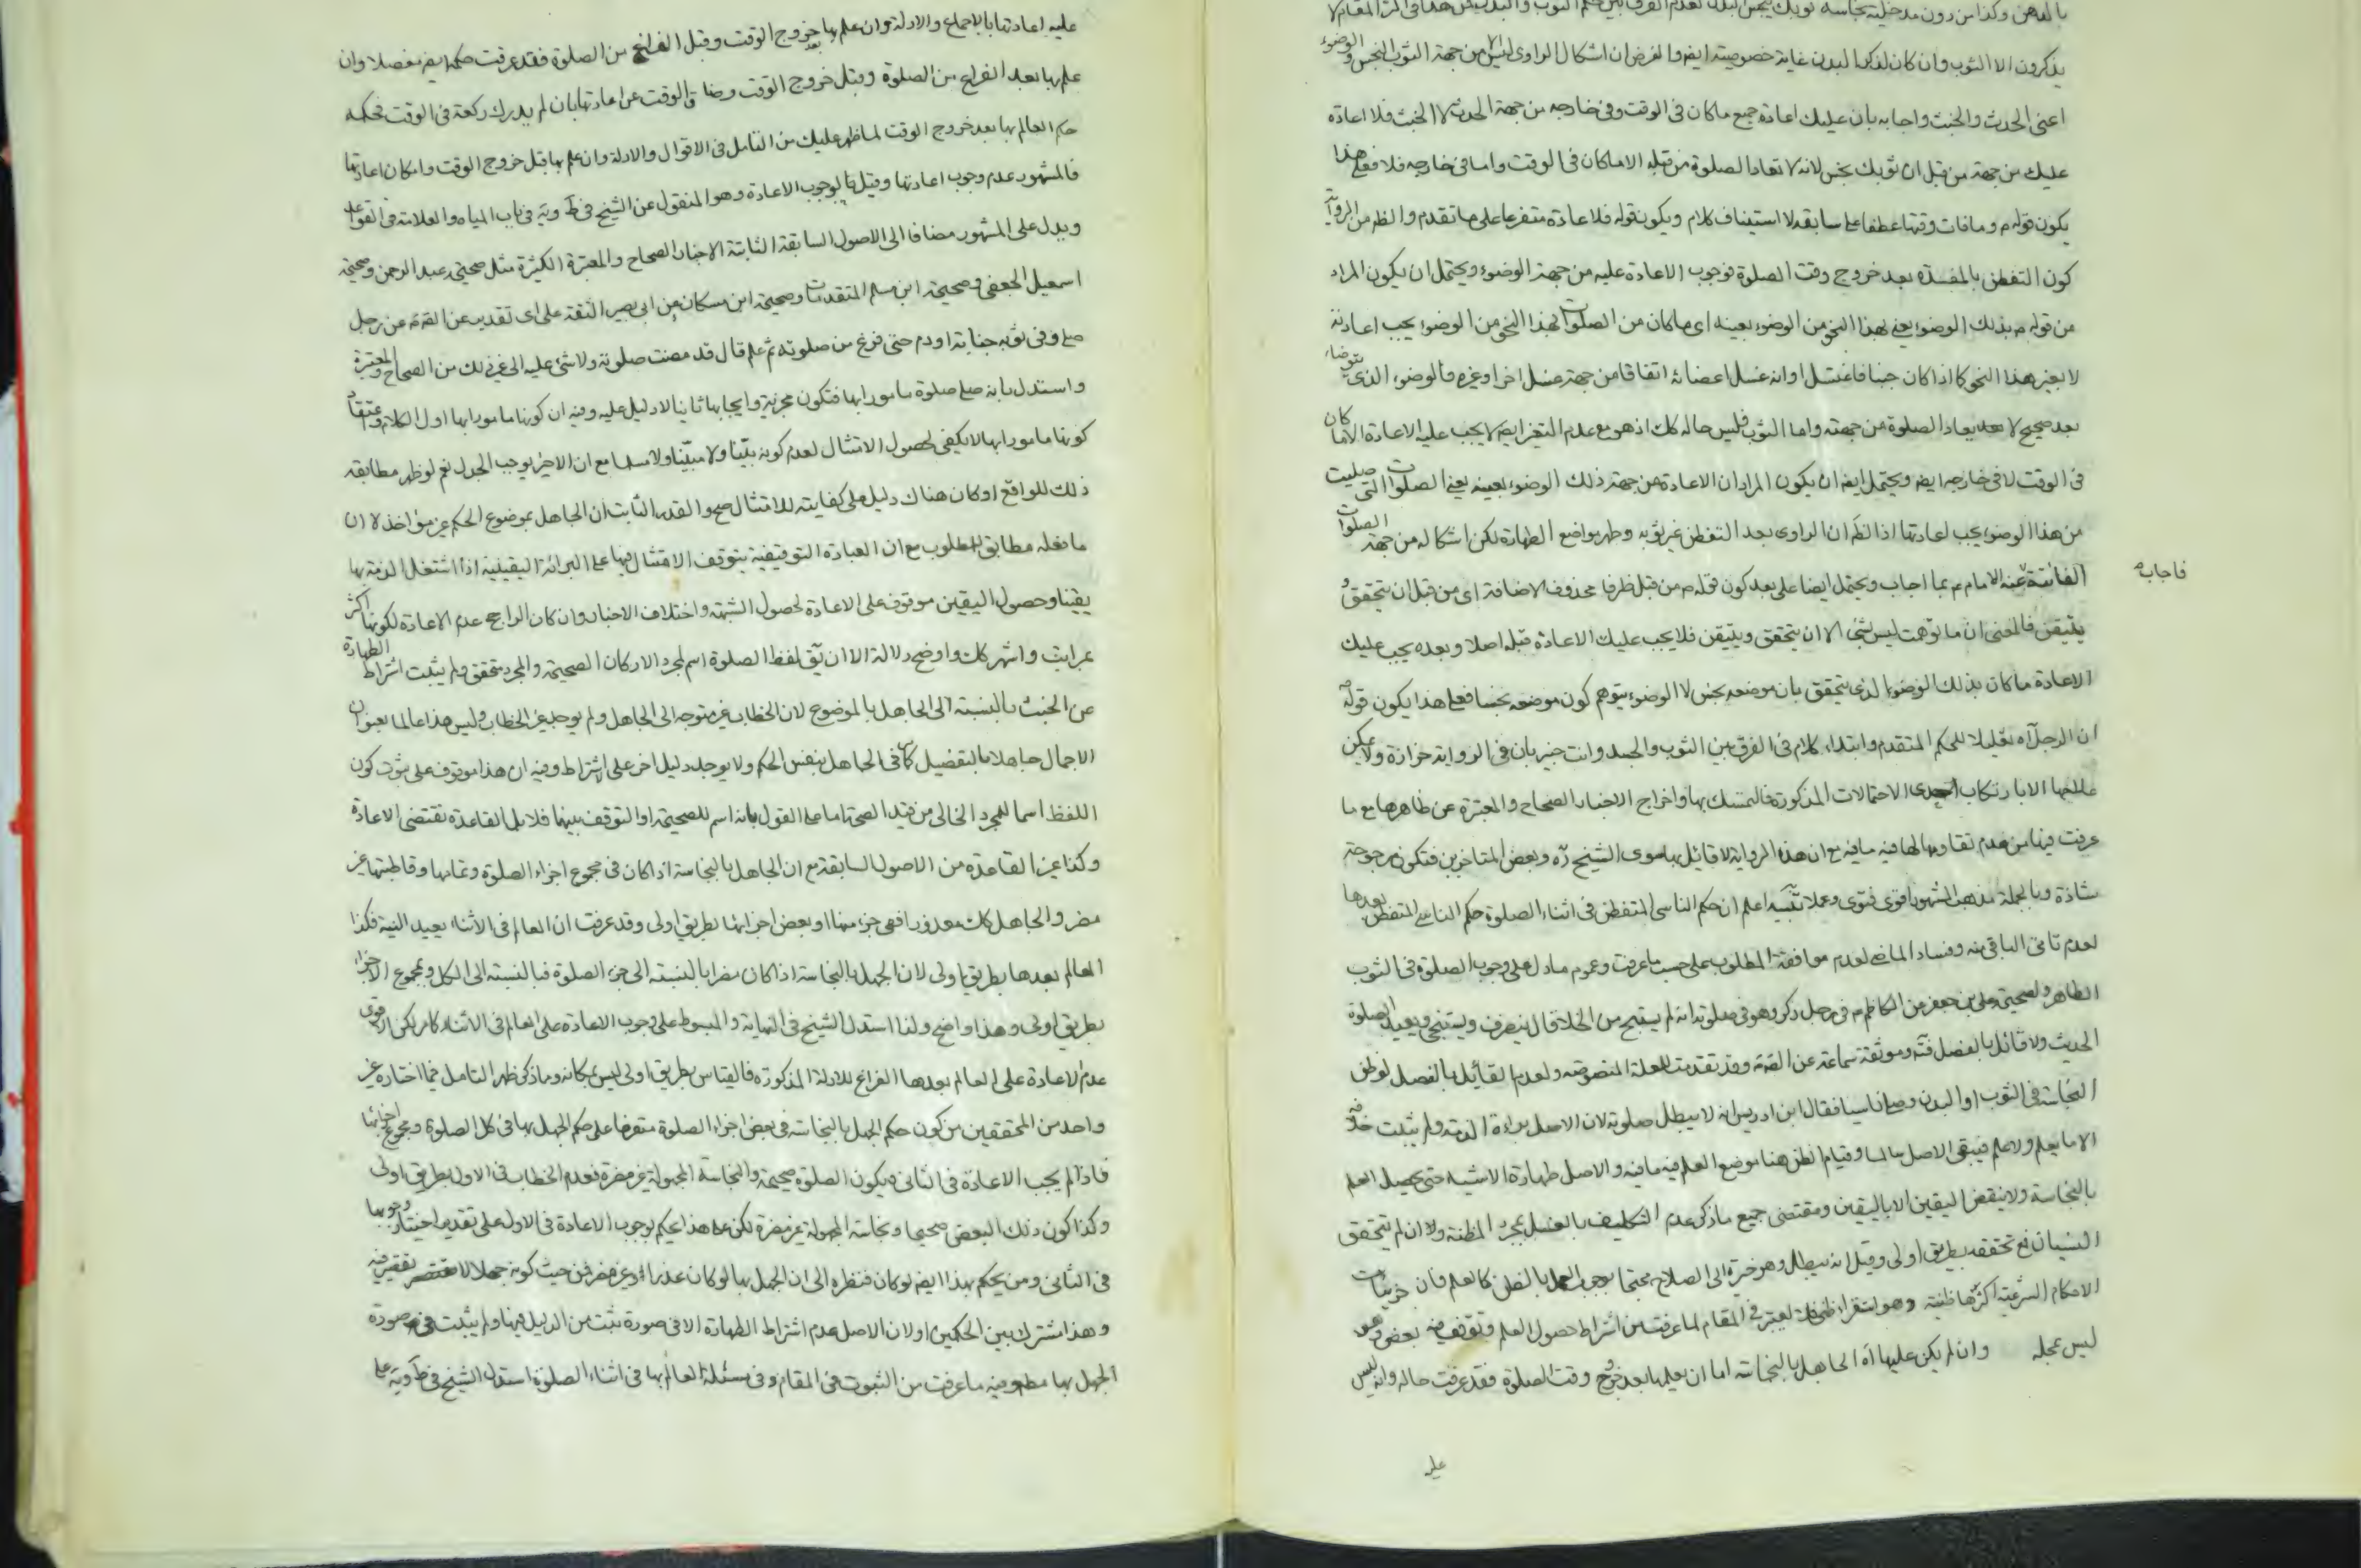 يذكرون الا الثوب وان كان لذكر البدن غاية خصوصية ايضا والغرض ان اشكال الراوى ليس الا من جهة الثوب النجس والوضوء
اعنى الحدث والخبث واجابه بان عليك اعادة جميع ما كان فى الوقت وفى خارجه من جهة الحدث لا الخبث فلا اعادة
عليك من جهته من قبل ان ثوبك نجس لانه لا تعاد الصلوة من قبله الا ما كان فى الوقت واما فى خارجه فلا فعلى هذا
يكون قوله م وما فات وقتها عطفا على سابقه لا استيناف كلام ويكون قوله فلا اعادة متفرعا على ما تقدم والظ من الرواية
كون التفطن بالمفسدة بعد خروج وقت الصلوة فوجوب الاعادة عليه من جهة الوضوء ويحتمل ان يكون المراد
من قوله م بذلك الوضوء يعنى بهذا النحو من الوضوء بعينه اى ما كان من الصلوات بهذا النحو من الوضوء يجب اعادته
لا بغير هذا النحو كما اذا كان جنبا فاغتسل او انه غسل اعضائه اتفاقا من جهة غسل اخر او غيره فالوضوء الذى يتوضاء
بعد صحيح لا يعاد الصلوة من جهته واما الثوب فليس حاله كك اذ هو مع عدم التغير ايضا لا يجب عليه الاعادة الا ما كان
فى الوقت لا فى خارجه ايضا ويحتمل ايضا ان يكون المراد ان الاعادة من جهة ذلك الوضوء بعينه يعنى الصلوات التى صليت
من هذا الوضوء يجب اعادتها اذ الظ ان الراوى بعد التفطن غير ثوبه وطهر مواضع الطهارة لكن اشكاله من جهة الصلوات
الفائتة عنه الامام م بما اجاب ويحتمل ايضا على بعد كون قوله م من قبل ظرفا محذوف الاضافة اى من قبل ان يتحقق و
فاجاب
يتيقن فالمعنى ان ما توهمت ليس بشئ الا ان يتحقق ويتيقن فلا يجب عليك الاعادة قبله اصلا وبعده يجب عليك
الاعادة ما كان بذلك الوضوء الذى يتحقق بان موضعه نجس لا الوضوء يتوهم كون موضعه نجسا فعلى هذا يكون قوله
ان الرجل اه تعليلا للحكم المتقدم وابتداء كلام فى الفرق بين الثوب والجسد وانت خبير بان فى الرواية حزازة ولا يمكن
علاجها الا بارتكاب احدى الاحتمالات المذكورة فالتمسك بها واخراج الاخبار الصحاح والمعتبرة عن ظاهرها مع ما
عرفت فيها من عدم تقاومها لها فيه ما فيه مع ان هذه الرواية لا قائل بها سوى الشيخ ره وبعض المتاخرين فتكون مرجوحة
شاذة وبالجملة مذهب المشهور اقوى فتوى وعملا تنبيه اعلم ان حكم الناسى المتفطن فى اثناء الصلوة حكم الناسى المتفطن بعدها
لعدم تاتى الباقى منه وفساد الماضى لعدم موافقة المطلوب على حسب ما عرفت وعموم ما دل على وجوب الصلوة فى الثوب
الطاهر ولصحيحة على بن جعفر من الكاظم م فى رجل ذكر وهو فى صلوته انه لم يستنج من الخلا قال ينصرف ويستنجى ويعيد الصلوة
الحديث ولا قائل بالفصل فته وموثقة سماعة عن الص م وقد تقدمت للعلة المنصوصة ولعدم القائل بالفصل لو ظن
النجاسة فى الثوب او البدن وصلى ناسيا فقال ابن ادريس انه لا يبطل صلوته لان الاصل براءة الذمة ولم يثبت خلافه
الا ما يعلم ولا علم فيبقى الاصل سالما وقيام الظن هنا موضع العلم فيه ما فيه والاصل طهارة الاشياء حتى يحصل العلم
بالنجاسة ولا ينقض اليقين الا باليقين ومقتضى جميع ما ذكر عدم التكليف بالغسل بمجرد المظنة ولا ان لم يتحقق
النسيان فمع تحققه بطريق اولى وقيل انه يبطل وهو خيرة ابى الصلاح محتجا بوجوب العمل بالظن كالعلم فان جزئيات
الاحكام الشرعية اكثرها ظنية وهو استقراء ظنى فلا يعتبر فى المقام لما عرفت من اشتراط حصول العلم وتوقف فيه بعض وهو
ليس بمحله وان لم يكن عليها اه الجاهل بالنجاسة اما ان يعلم بها بعد خروج وقت الصلوة فقد عرفت حاله وانه ليس
عليه
عليه اعادتها بالاجماع والادلة وان علم بها بعد خروج الوقت وقبل الفراغ من الصلوة فقد عرفت حكمه ايضا مفصلا وان
علم بها بعد الفراغ من الصلوة وقبل خروج الوقت وضاق الوقت عن اعادتها بان لم يدرك ركعة فى الوقت فحكمه
حكم العالم بها بعد خروج الوقت لما ظهر عليك من التامل فى الاقوال والادلة وان علم بها قبل خروج الوقت وامكان اعادتها
فالمشهور عدم وجوب اعادتها وقيل بوجوب الاعادة وهو المنقول عن الشيخ فى ط وية فى باب المياه والعلامة فى القواعد
ويدل على المشهور مضافا الى الاصول السابقة الثابتة الاخبار الصحاح والمعتبرة الكثيرة مثل صحيحة عبد الرحمن وصحيحة
اسمعيل الجعفى وصحيحة ابن مسلم المتقدمات وصحيحة ابن مسكان عن ابى بصير الثقة على اى تقدير عن الص م عن رجل
صلى وفى ثوبه جنابة او دم حتى فرغ من صلوته ثم علم قال قد مضت صلوته ولا شئ عليه الى غير ذلك من الصحاح والمعتبرة
واستدل بانه صلى صلوة مامورا بها فتكون مجزية وايجابها ثانيا لا دليل عليه وفيه ان كونها مامورا بها اول الكلام واعتقاد
كونها مامورا بها لا يكفى لحصول الامتثال لعدم كونه بيّنا ولا مبيّنا ولا مسلما مع ان الاخير يوجب الجدل نعم لو ظهر مطابقة
ذلك للواقع او كان هناك دليل على كفايته للامتثال صح والقدر الثابت ان الجاهل بموضوع الحكم غير مؤاخذ لا ان
ما فعله مطابق للمطلوب مع ان العبادة التوقيفية يتوقف الامتثال فيها على البرائة اليقينية اذا اشتغل الذمة بها
يقينا وحصول اليقين موقوف على الاعادة لحصول الشبهة واختلاف الاخبار وان كان الراجح عدم الاعادة لكونها اكثر
بمراتب واشهر كك واوضح دلالة الا ان يق لفظ الصلوة اسم لمجرد الاركان الصحيحة والمجرد متحقق ولم يثبت اشتراط الطهارة
عن الخبث بالنسبة الى الجاهل بالموضوع لان الخطاب غير متوجه الى الجاهل ولم يوجد غير الخطاب وليس هذا عالما بعنوان
الاجمال جاهلا بالتفصيل كما فى الجاهل بنفس الحكم ولا يوجد دليل اخر على الاشتراط وفيه ان هذا موقوف على ثبوت كون
اللفظ اسما للمجرد الخالى من قيد الصحة اما على القول بانه اسم للصحيحة او التوقف بينهما فلا بل القاعدة تقتضى الاعادة
وكذا غير القاعدة من الاصول السابقة مع ان الجاهل بالنجاسة اذا كان فى مجموع اجزاء الصلوة وتمامها وقاطبتها غير
مضر والجاهل كك معذورا ففى جزء منها او بعض اجزائها بطريق اولى وقد عرفت ان العالم فى الاثناء يعيد البتة فكذا
العالم بعدها بطريق اولى لان الجهل بالنجاسة اذا كان مضرا بالنسبة الى جزء الصلوة فبالنسبة الى الكل ومجموع الاجزاء
بطريق اولى وهذا واضح ولذا استدل الشيخ فى النهاية والمبسوط على وجوب الاعادة على العالم فى الاثناء كما مر لكن الاقوى
عدم الاعادة على العالم بعدها الفراغ للادلة المذكورة فالقياس بطريق اولى ليس بمكانه وما ذكر ظهر التامل فيما اختاره غير
واحد من المحققين من كون حكم الجهل بالنجاسة فى بعض اجزاء الصلوة متفرعا على حكم الجهل بها فى كل الصلوة ومجموع اجزائها
فاذا لم يجب الاعادة فى الثانى فيكون الصلوة صحيحة والنجاسة المجهولة غير مضرة فعدم الخطاب فى الاول بطريق اولى
وكذا كون ذلك البعض صحيحا ونجاسته المجهولة غير مضرة لكن على هذا يحكم بوجوب الاعادة فى الاول على تقدير اختيار وجوبها
فى الثانى ومن يحكم بهذا ايضا لو كان فنظره الى ان الجهل بها لو كان عذرا وغير مضر فمن حيث كونه جهلا لا تقصير فيه
وهذا مشترك بين الحكمين او لان الاصل عدم اشتراط الطهارة الا فى صورة ثبت من الدليل فيها ولم يثبت فى صورة
الجهل بها مطلقا وفيه ما عرفت من الثبوت فى المقام وفى مسئلة العالم بها فى اثناء الصلوة استدل الشيخ فى ط وية على